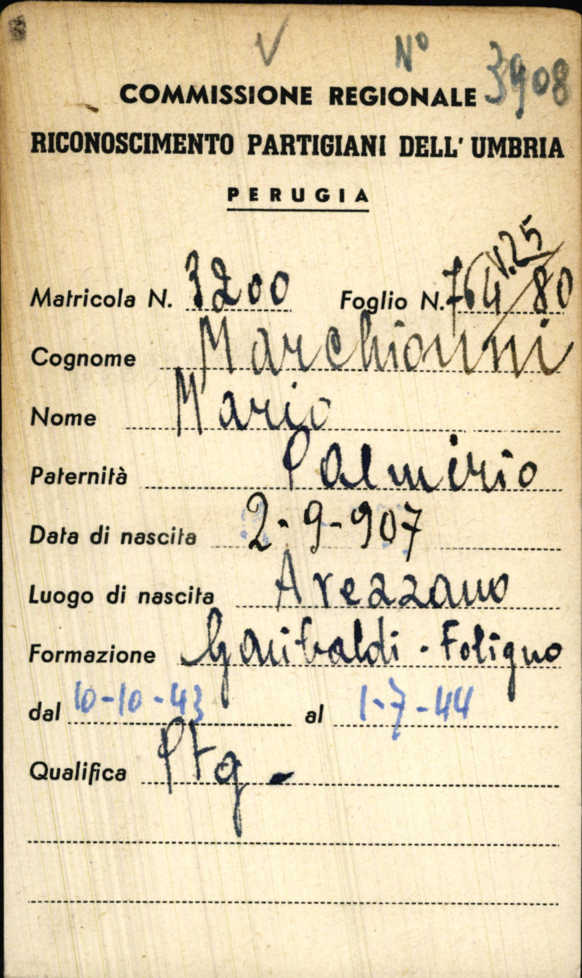 V N° 3908
COMMISSIONE REGIONALE
RICONOSCIMENTO PARTIGIANI DELL' UMBRIA
PERUGIA
V.25
Matricola N. 3200 Foglio N. 764/80
Cognome Marchionni
Nome Mario
Paternità Palmirio
Data di nascita 2-9-907
Luogo di nascita Avezzano
Formazione Garibaldi - Foligno
dal 10-10-43 al 1-7-44
Qualifica Ptg.